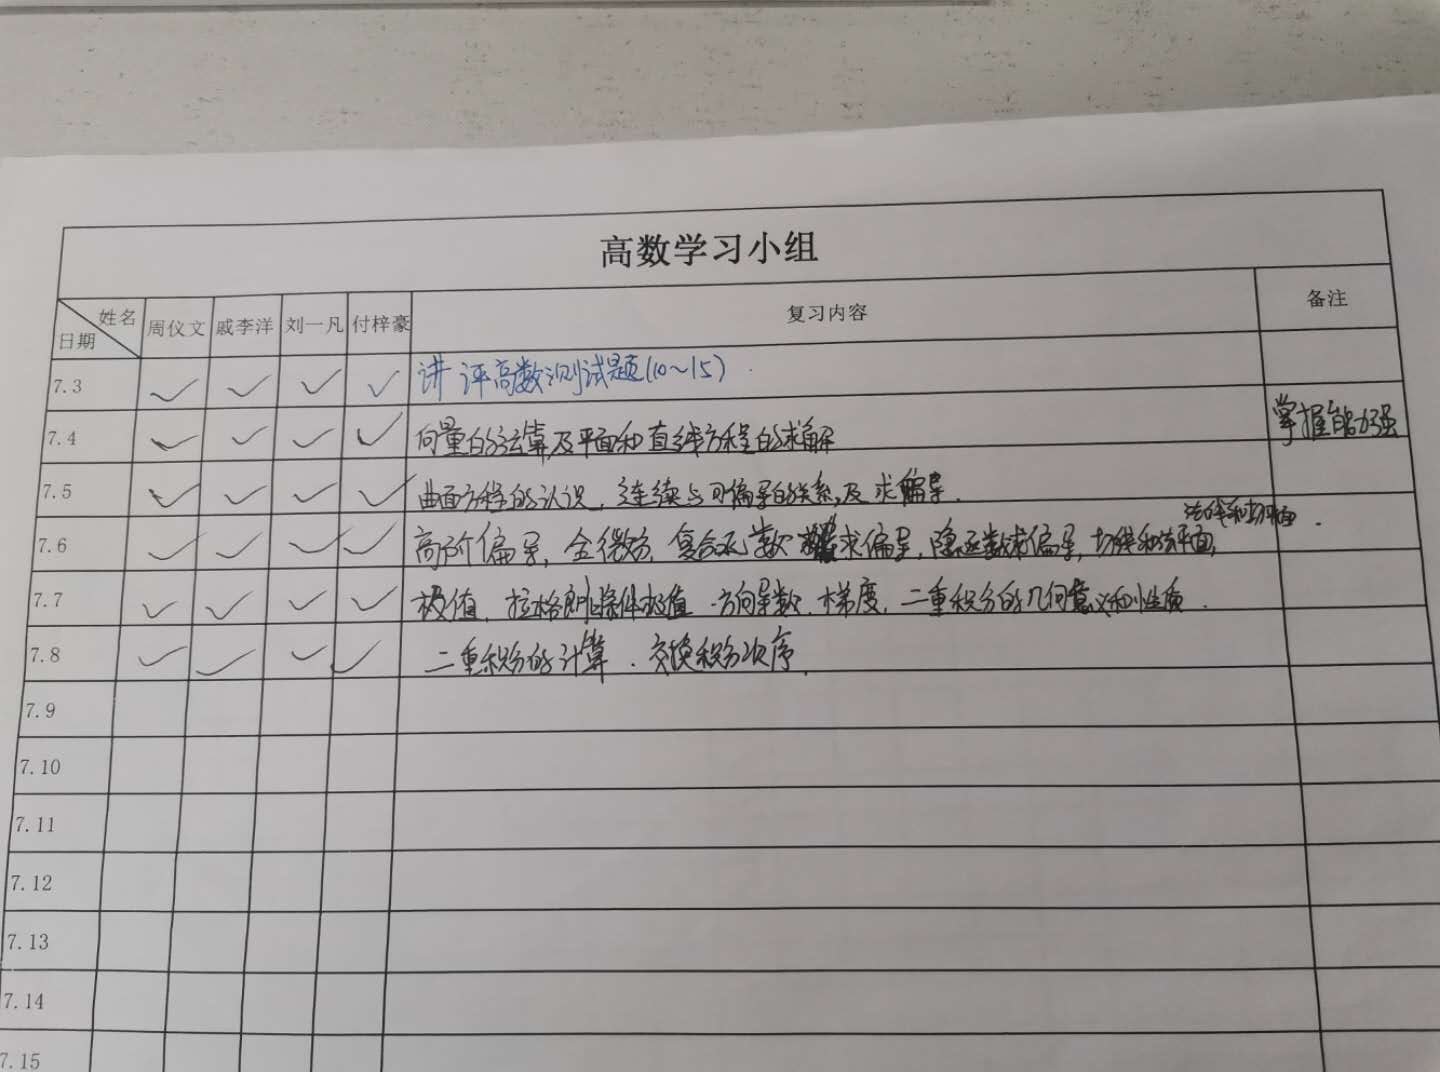 高数学习小组
姓名 日期 周仪文 戚李洋 刘一凡 付梓豪 复习内容 备注
7.3 ✓ ✓ ✓ ✓ 讲评高数测试题(10~15).
7.4 ✓ ✓ ✓ ✓ 向量的运算及平面和直线方程的求解 掌握能力强
7.5 ✓ ✓ ✓ ✓ 曲面方程的认识,连续与可偏导的关系,及求偏导.
法线和切平面.
7.6 ✓ ✓ ✓ ✓ 高阶偏导,全微分,复合函数求偏导,隐函数求偏导,切线和法平面,
7.7 ✓ ✓ ✓ ✓ 极值,拉格朗日条件极值.方向导数.梯度,二重积分的几何意义和性质.
7.8 ✓ ✓ ✓ ✓ 二重积分的计算.交换积分次序.
7.9
7.10
7.11
7.12
7.13
7.14
7.15